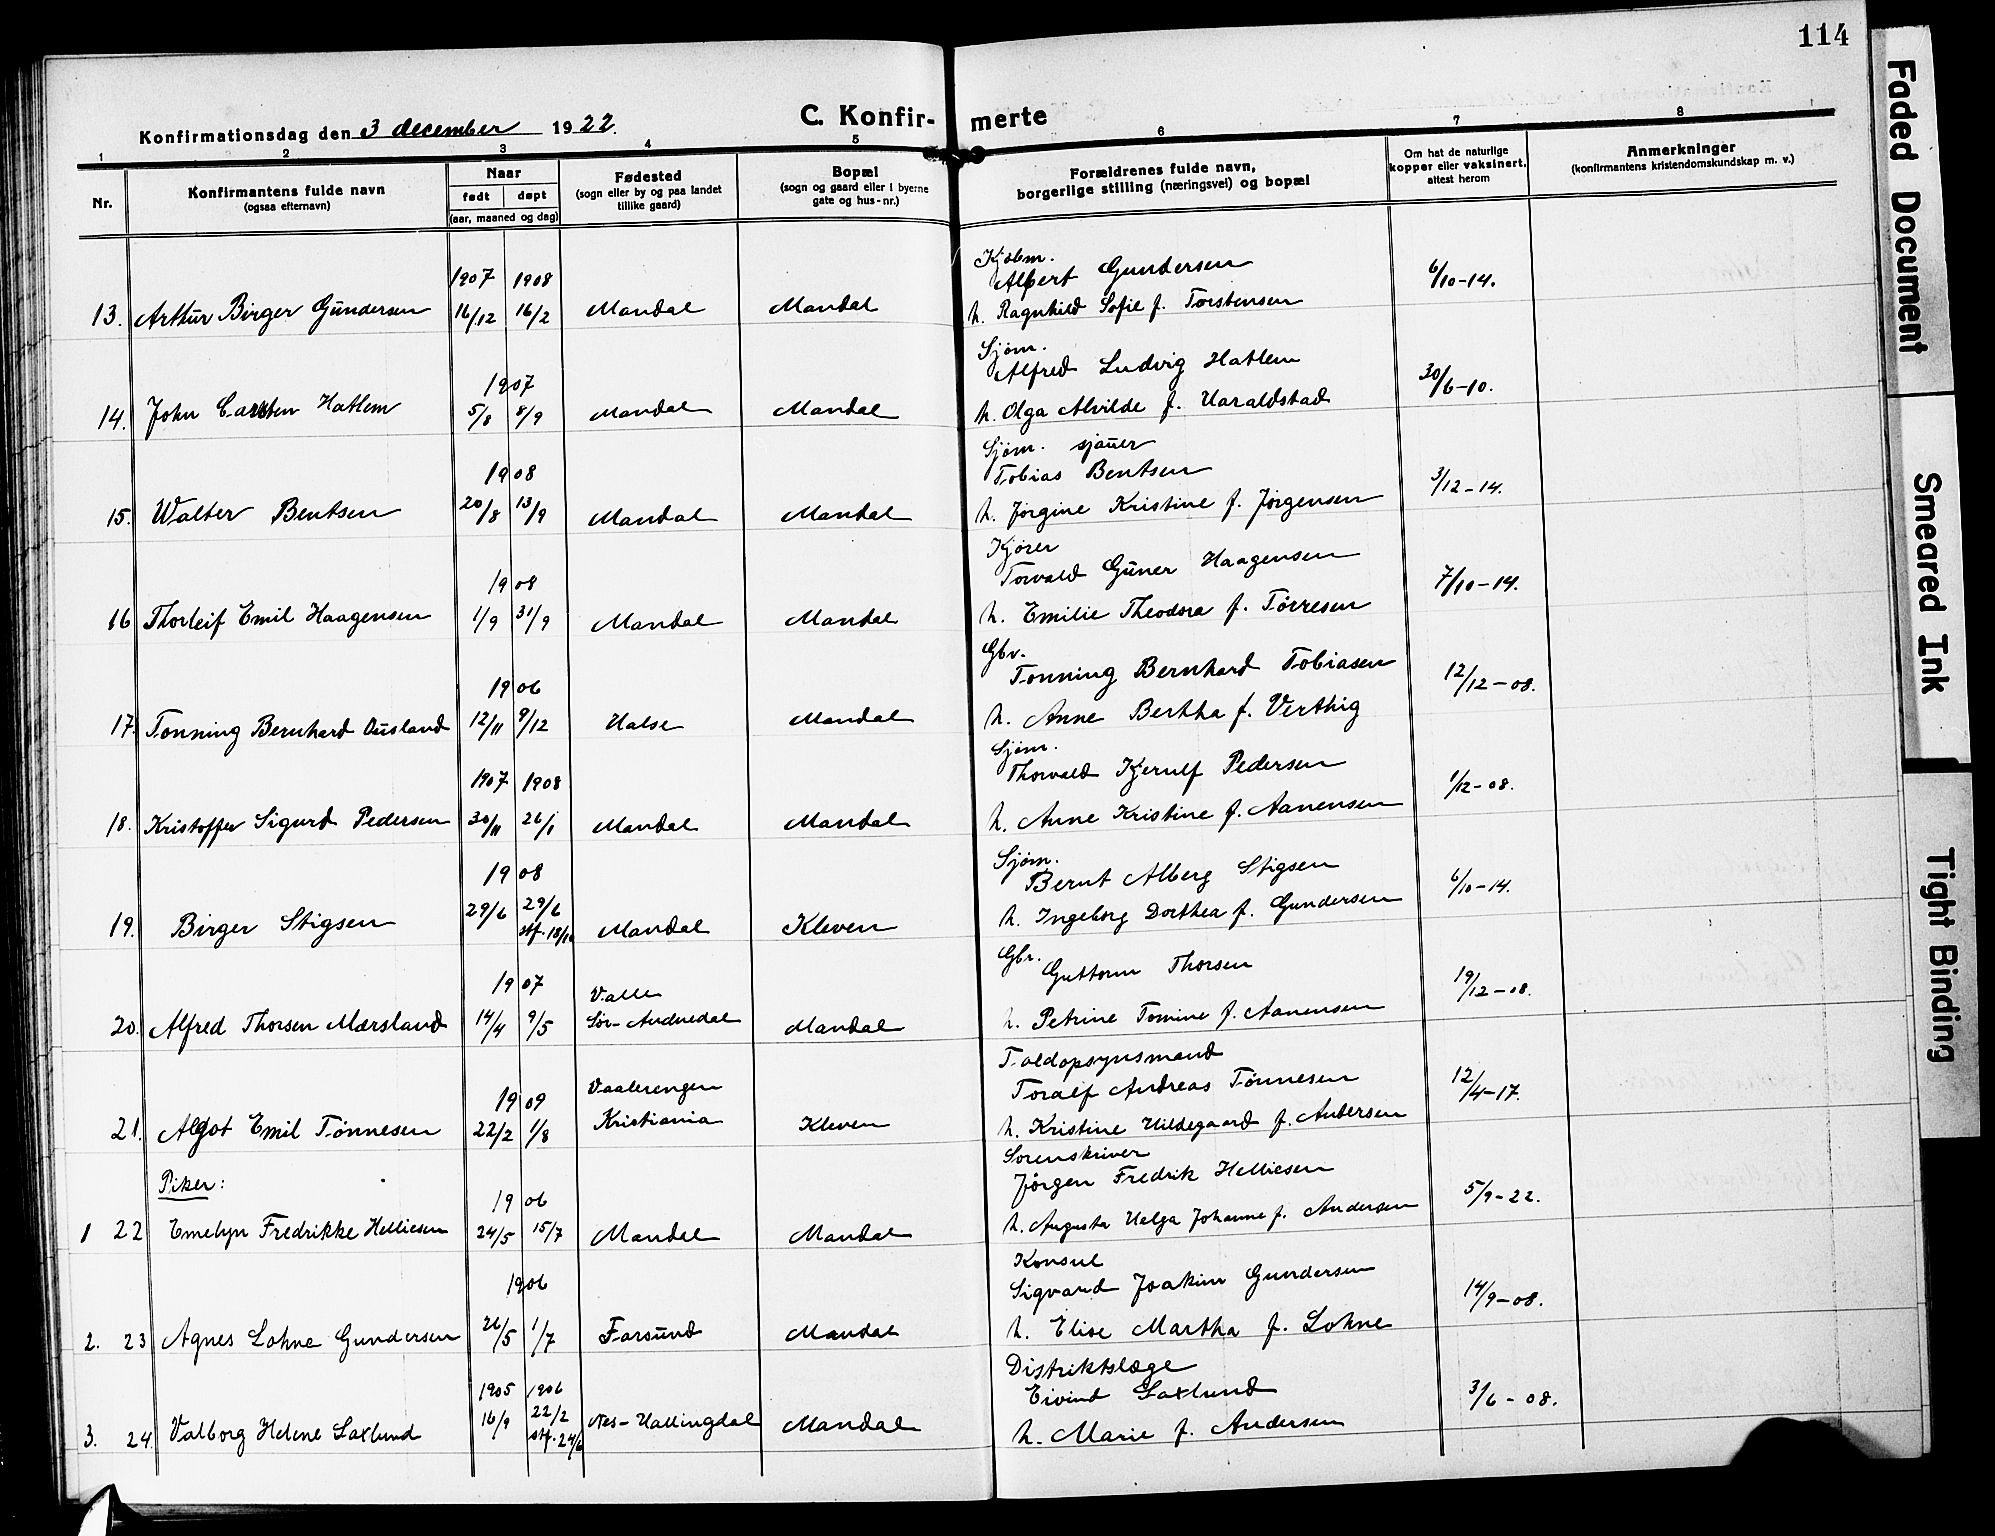 114
Konfirmationsdag den 3 december 1922.
C. Konfir-merte
1 2 3 4 5 6 7 8
Nr.
Konfirmantens fulde navn
(ogsaa efternavn)
Naar
født døpt
(aar, maaned og dag)
Fødested
(sogn eller by og paa landet
tillike gaard)
Bopæl
(sogn og gaard eller i byerne
gate og hus-nr.)
Forældrenes fulde navn,
borgerlige stilling (næringsvei) og bopæl
Om hat de naturlige
kopper eller vaksinert,
attest herom
Anmerkninger
(konfirmantens kristendomskundskap m. v.)
Kjøbm.
1907 1908 Albert Gundersen 6/10-14.
13. Arthur Birger Gundersen 16/12 16/2 Mandal Mandal h. Ragnhild Sofie f. Torstensen
Sjøm.
1907 Alfred Ludvig Hatlem 30/6-10.
14. John Carsten Hatlem 5/8 8/9 Mandal Mandal h. Olga Alvilde f. Haraldstad
Sjøm. sjauer
1908 Tobias Bentsen 3/12-14.
15. Walter Bentsen 20/8 13/9 Mandal Mandal h. Jørgine Kristine f. Jørgensen
Kjører
1908 Torvald Guner Haagensen 7/10-14.
16 Thorleif Emil Haagensen 1/9 31/9 Mandal Mandal h. Emilie Theodora f. Tørresen
Gbr.
1906 Tønning Bernhard Tobiasen 12/12-08.
17. Tønning Bernhard Ousland 12/11 9/12 Halse Mandal h. Anne Bertha f. Verthig
Sjøm.
1907 1908 Thorvald Kjerulf Pedersen 1/12-08.
18. Kristoffer Sigurd Pedersen 30/11 26/1 Mandal Mandal h. Anne Kristine f. Aanensen
Sjøm.
1908 Bernt Alberg Stigsen 6/10-14.
19. Birger Stigsen 29/6 29/6 Mandal Kleven h. Ingeborg Dorthea f. Gundersen
stf. 18/10
Gbr.
1907 Valle Guttorm Thorsen 19/12-08.
20. Alfred Thorsen Mærsland 14/4 9/5 Sør-Audnedal Mandal h. Petrine Tomine f. Aanensen
Toldopsynsmand
1909 Vaalerengen Toralf Andreas Tønnesen 12/4-17.
21. Algot Emil Tønnesen 22/2 1/8 Kristiania Kleven h. Kristine Hildegaard f. Andersen
Piker:
Sorenskriver
1906 Jørgen Fredrik Helliesen 5/9-22.
1 22 Emelyn Fredrikke Helliesen 24/5 15/7 Mandal Mandal h. Augusta Helga Johanne f. Andersen
Konsul
1906 Sigvard Joakim Gundersen 14/9-08.
2. 23 Agnes Lohne Gundersen 26/5 1/7 Farsund Mandal h. Elise Martha f. Lohne
Distriktslæge
1905 1906 Eivind Saxlund 3/6-08.
3. 24. Valborg Helene Saxlund 16/9 22/2 Nes-Hallingdal Mandal h. Marie f. Andersen
stf. 24/6
Faded Document
Smeared Ink
Tight Binding